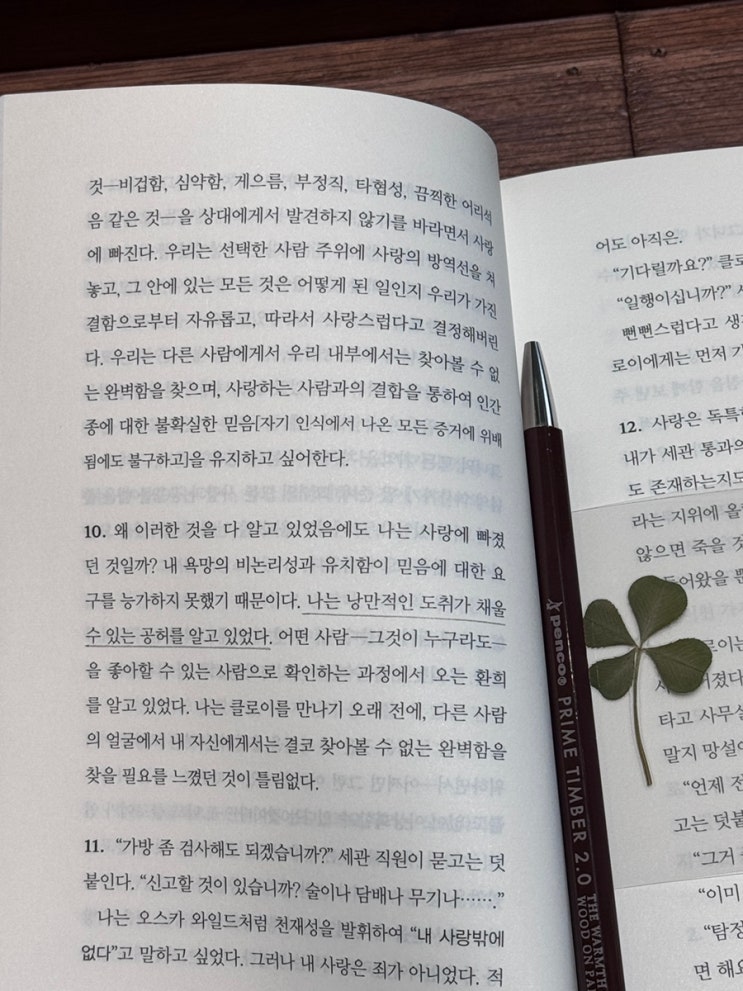 것—비겁함, 심약함, 게으름, 부정직, 타협성, 끔찍한 어리석
음 같은 것—을 상대에게서 발견하지 않기를 바라면서 사랑
에 빠진다. 우리는 선택한 사람 주위에 사랑의 방역선을 쳐
놓고, 그 안에 있는 모든 것은 어떻게 된 일인지 우리가 가진
결함으로부터 자유롭고, 따라서 사랑스럽다고 결정해버린
다. 우리는 다른 사람에게서 우리 내부에서는 찾아볼 수 없
는 완벽함을 찾으며, 사랑하는 사람과의 결합을 통하여 인간
종에 대한 불확실한 믿음[자기 인식에서 나온 모든 증거에 위배
됨에도 불구하고]을 유지하고 싶어한다.
10. 왜 이러한 것을 다 알고 있었음에도 나는 사랑에 빠졌
던 것일까? 내 욕망의 비논리성과 유치함이 믿음에 대한 요
구를 능가하지 못했기 때문이다. 나는 낭만적인 도취가 채울
수 있는 공허를 알고 있었다. 어떤 사람—그것이 누구라도—
을 좋아할 수 있는 사람으로 확인하는 과정에서 오는 환희
를 알고 있었다. 나는 클로이를 만나기 오래 전에, 다른 사람
의 얼굴에서 내 자신에게서는 결코 찾아볼 수 없는 완벽함을
찾을 필요를 느꼈던 것이 틀림없다.
11. “가방 좀 검사해도 되겠습니까?” 세관 직원이 묻고는 덧
붙인다. “신고할 것이 있습니까? 술이나 담배나 무기나……”
나는 오스카 와일드처럼 천재성을 발휘하여 “내 사랑밖에
없다”고 말하고 싶었다. 그러나 내 사랑은 죄가 아니었다. 적
어도 아직은.
“기다릴까요?” 클로
“일행이십니까?”
뻔뻔스럽다고
로이에게는 먼저
12. 사랑은
내가 세관
도 존재하는지도
라는 지위에
않으면 죽을
들어왔을
타고
말지
“언제
고는
“그거
“이미
“탐정
면
penco® PRIME TIMBER 2.0 THE WARMTH
WOOD ON